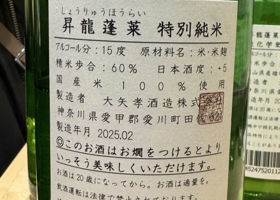 しょうりゅうほうらい
昇龍蓬莱 特別純米
アルコール分：15度 原材料名：米・米麹
精米歩合：60％ 日本酒度：+5
国産米100％使用
製造者 大矢孝酒造株式会社
神奈川県愛甲郡愛川町田代
製造年月 2025.02
◎このお酒はお燗をつけるとより
いっそう美味しくいただけます。
お酒は20歳になってから。お酒は適量を。
飲酒運転は法律で禁止されて